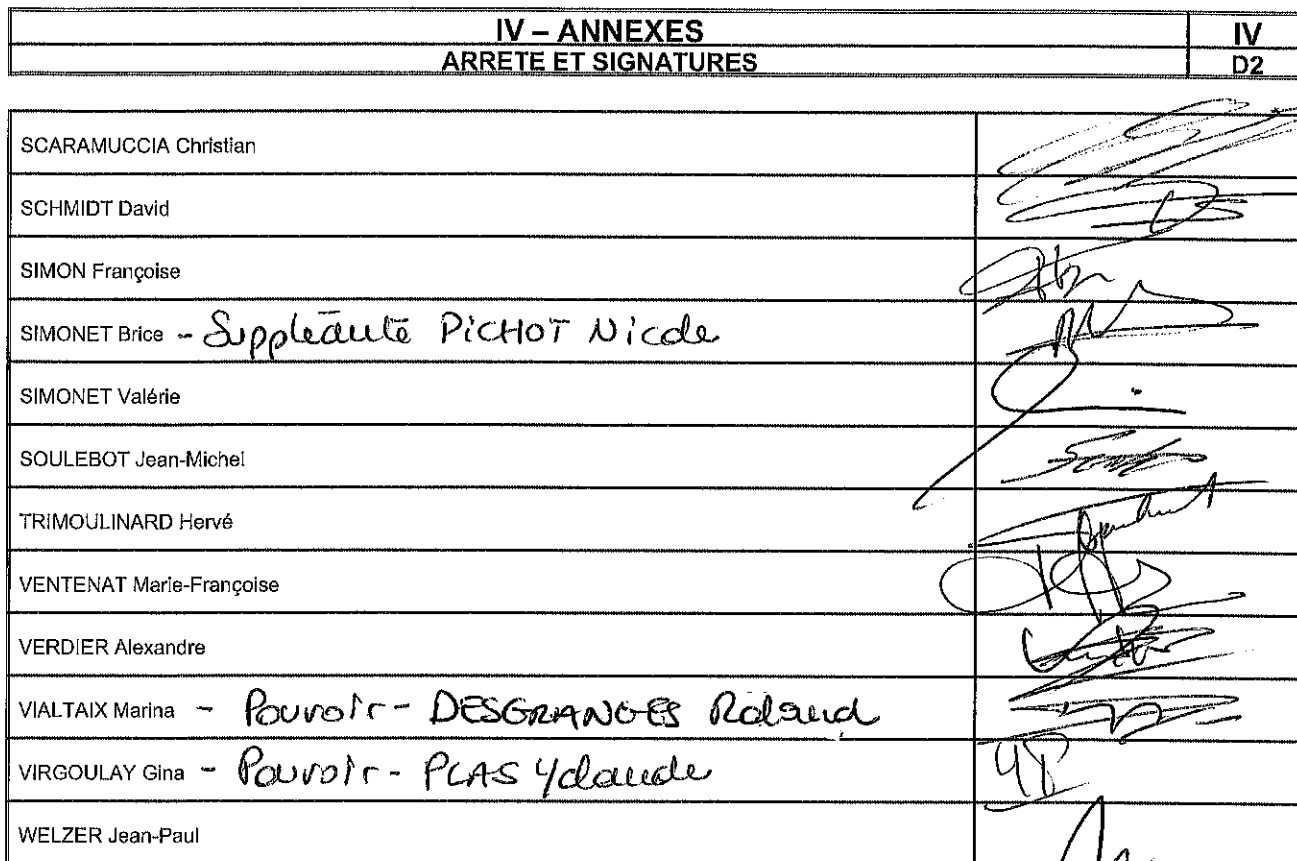 IV – ANNEXES IV
ARRETE ET SIGNATURES D2
SCARAMUCCIA Christian
SCHMIDT David
SIMON Françoise
SIMONET Brice - Suppléante PICHOT Nicole
SIMONET Valérie
SOULEBOT Jean-Michel
TRIMOULINARD Hervé
VENTENAT Marie-Françoise
VERDIER Alexandre
VIALTAIX Marina - Pouvoir - DESGRANGES Roland
VIRGOULAY Gina - Pouvoir - PLAS Yclaude
WELZER Jean-Paul